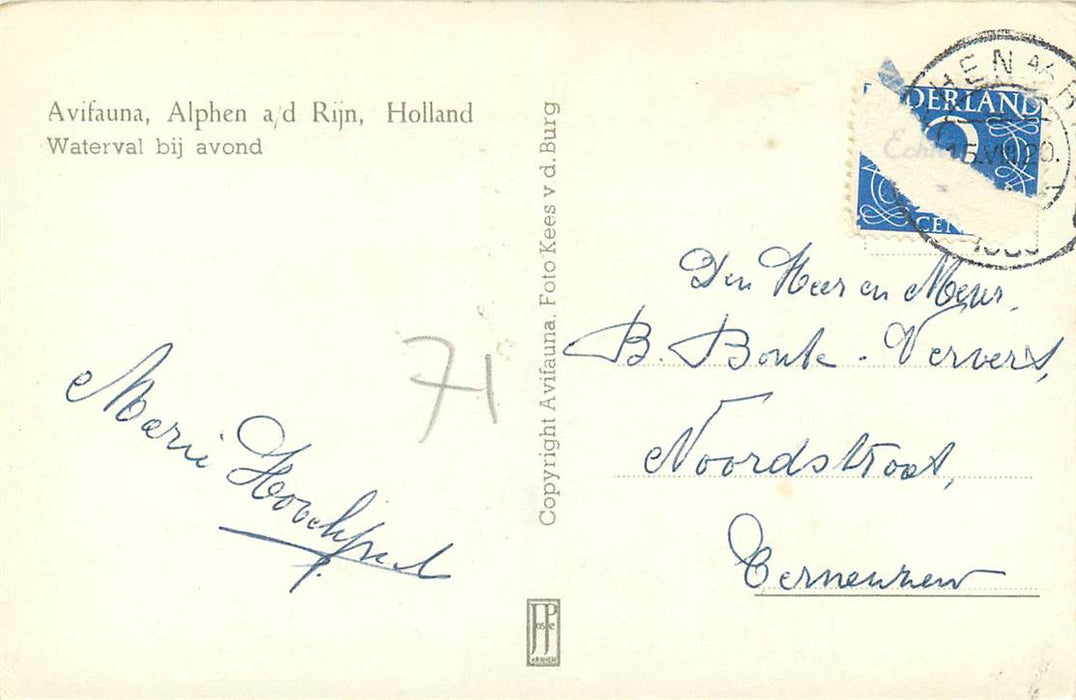 Avifauna, Alphen a/d Rijn, Holland
Waterval bij avond
Copyright Avifauna. Foto Kees v. d. Burg
71
Marie
DERLAND
CEN
15.VIII.20.
Den Heer en Mevr.
B. Bonte - Ververs,
Noordstraat,
Terneuzen
JosPe
ARNHEM